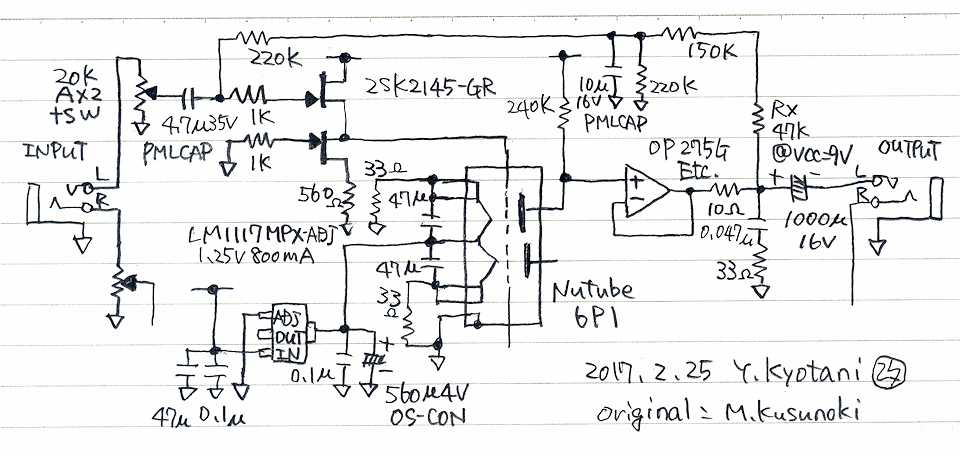 220K
150K
20K
AX2
+SW
2SK2145-GR
10μ
16V
PMLCAP
220K
4.7μ35V
PMLCAP
1K
1K
240K
Rx
47K
@Vcc=9V
OP275G
Etc.
INPUT
L
R
OUTPUT
L
R
+
-
560Ω
33Ω
47μ
+
-
10Ω
0.047μ
33Ω
1000μ
16V
LM1117MPX-ADJ
1.25V 800mA
47μ
33Ω
Nutube
6P1
ADJ
OUT
IN
0.1μ
+
-
560μ4V
OS-CON
47μ 0.1μ
2017.2.25 Y.Kyotani
original = M.Kusunoki